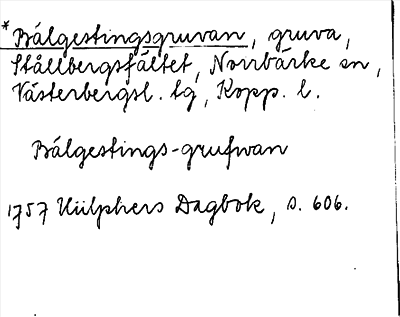 *Bålgestingsgruvan, gruva,
Stållbergsfältet, Norrbärke sn,
Västerbergsl. tg, Kopp. l.
Bålgestings-grufwan
1757 Hülphers Dagbok, s. 606.